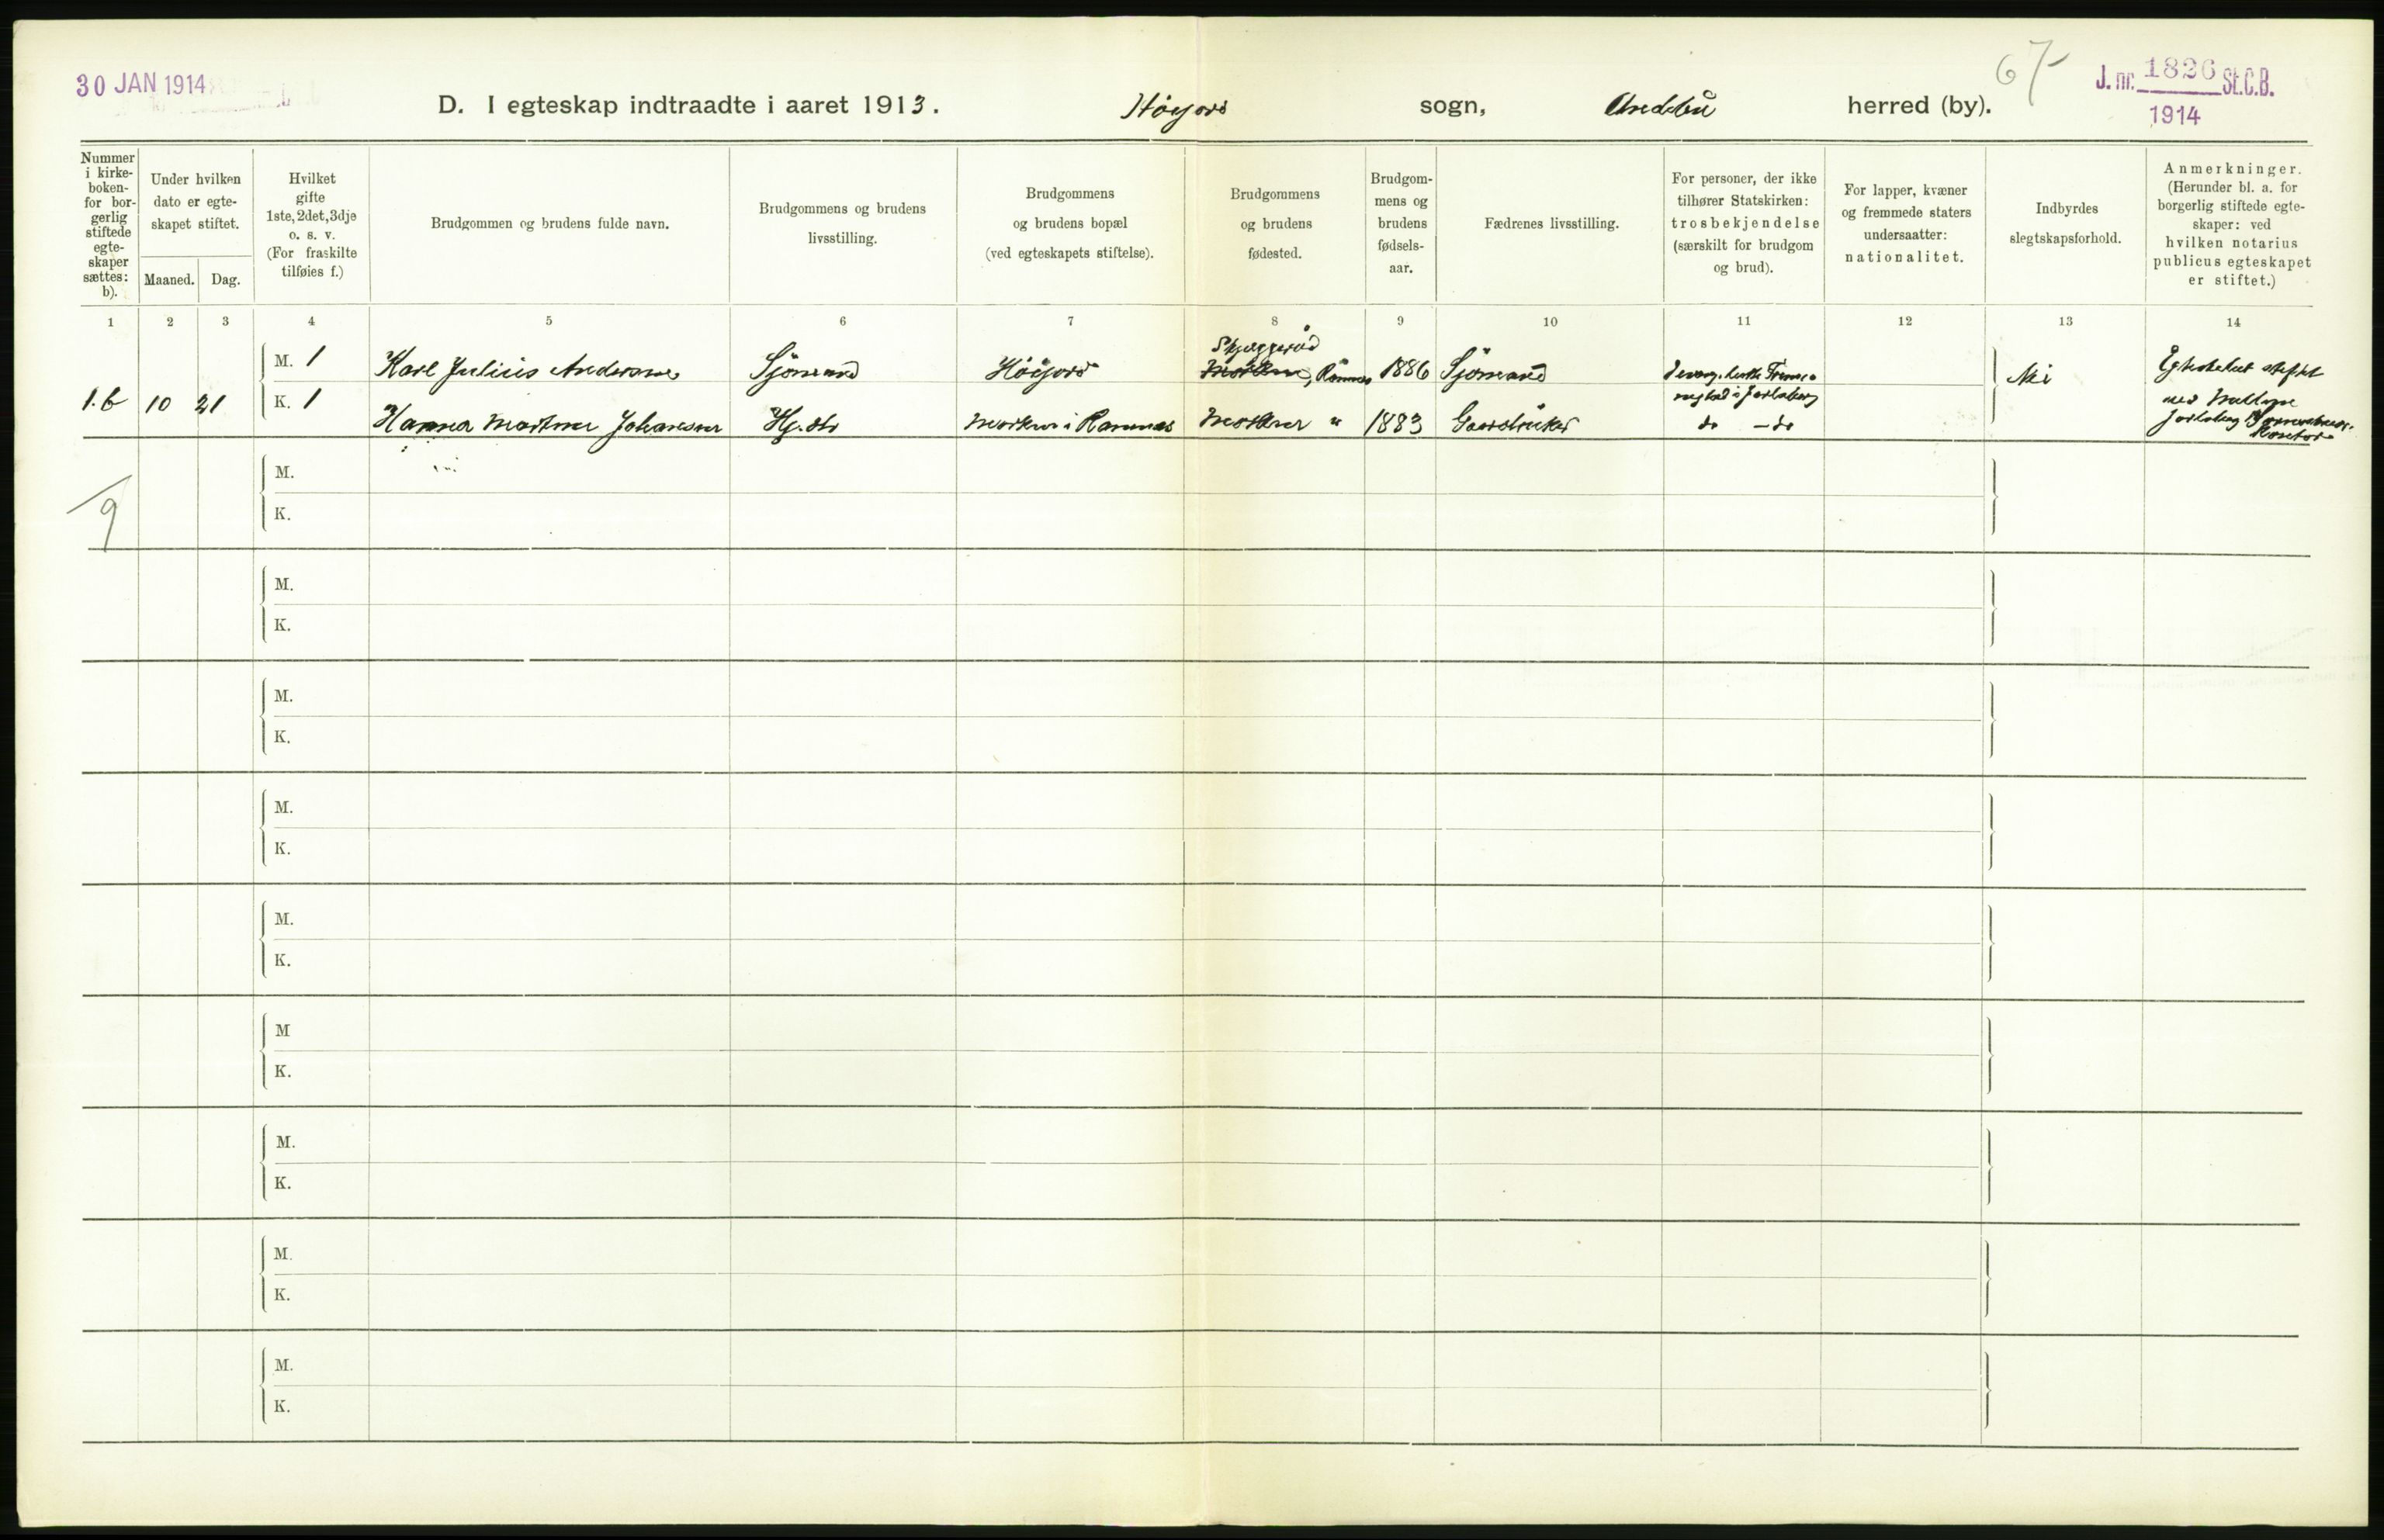 30 JAN 1914
67
J. nr. 1826 St.C.B.
1914
D. I egteskap indtraadte i aaret 1913. Høyjord sogn, Andebu herred (by).
Nummer i kirkeboken- for borgerlig stiftede egteskaper sættes: b).
Under hvilken dato er egteskapet stiftet.
Maaned. Dag.
Hvilket gifte 1ste, 2det, 3dje o. s. v. (For fraskilte tilføies f.)
Brudgommen og brudens fulde navn.
Brudgommens og brudens livsstilling.
Brudgommens og brudens bopæl (ved egteskapets stiftelse).
Brudgommens og brudens fødested.
Brudgommens og brudens fødselsaar.
Fædrenes livsstilling.
For personer, der ikke tilhører Statskirken: trosbekjendelse (særskilt for brudgom og brud).
For lapper, kvæner og fremmede staters undersaatter: nationalitet.
Indbyrdes slegtskapsforhold.
Anmerkninger. (Herunder bl. a. for borgerlig stiftede egteskaper: ved hvilken notarius publicus egteskapet er stiftet.)
1 2 3 4 5 6 7 8 9 10 11 12 13 14
Skjæggerød
M. 1 Karl Julius Andersen Sjömand Höijord Ramnes 1886 Sjömand
1. b 10 21 K. 1 Hanna Martine Johansen Hj. dtr Ramnes " 1883 Gaardbruker do - do
Nei
Egteskabet stiftet
ved
Jarlsberg
Kontor
9
M.
K.
M.
K.
M.
K.
M.
K.
M.
K.
M
K.
M.
K.
M.
K.
M.
K.